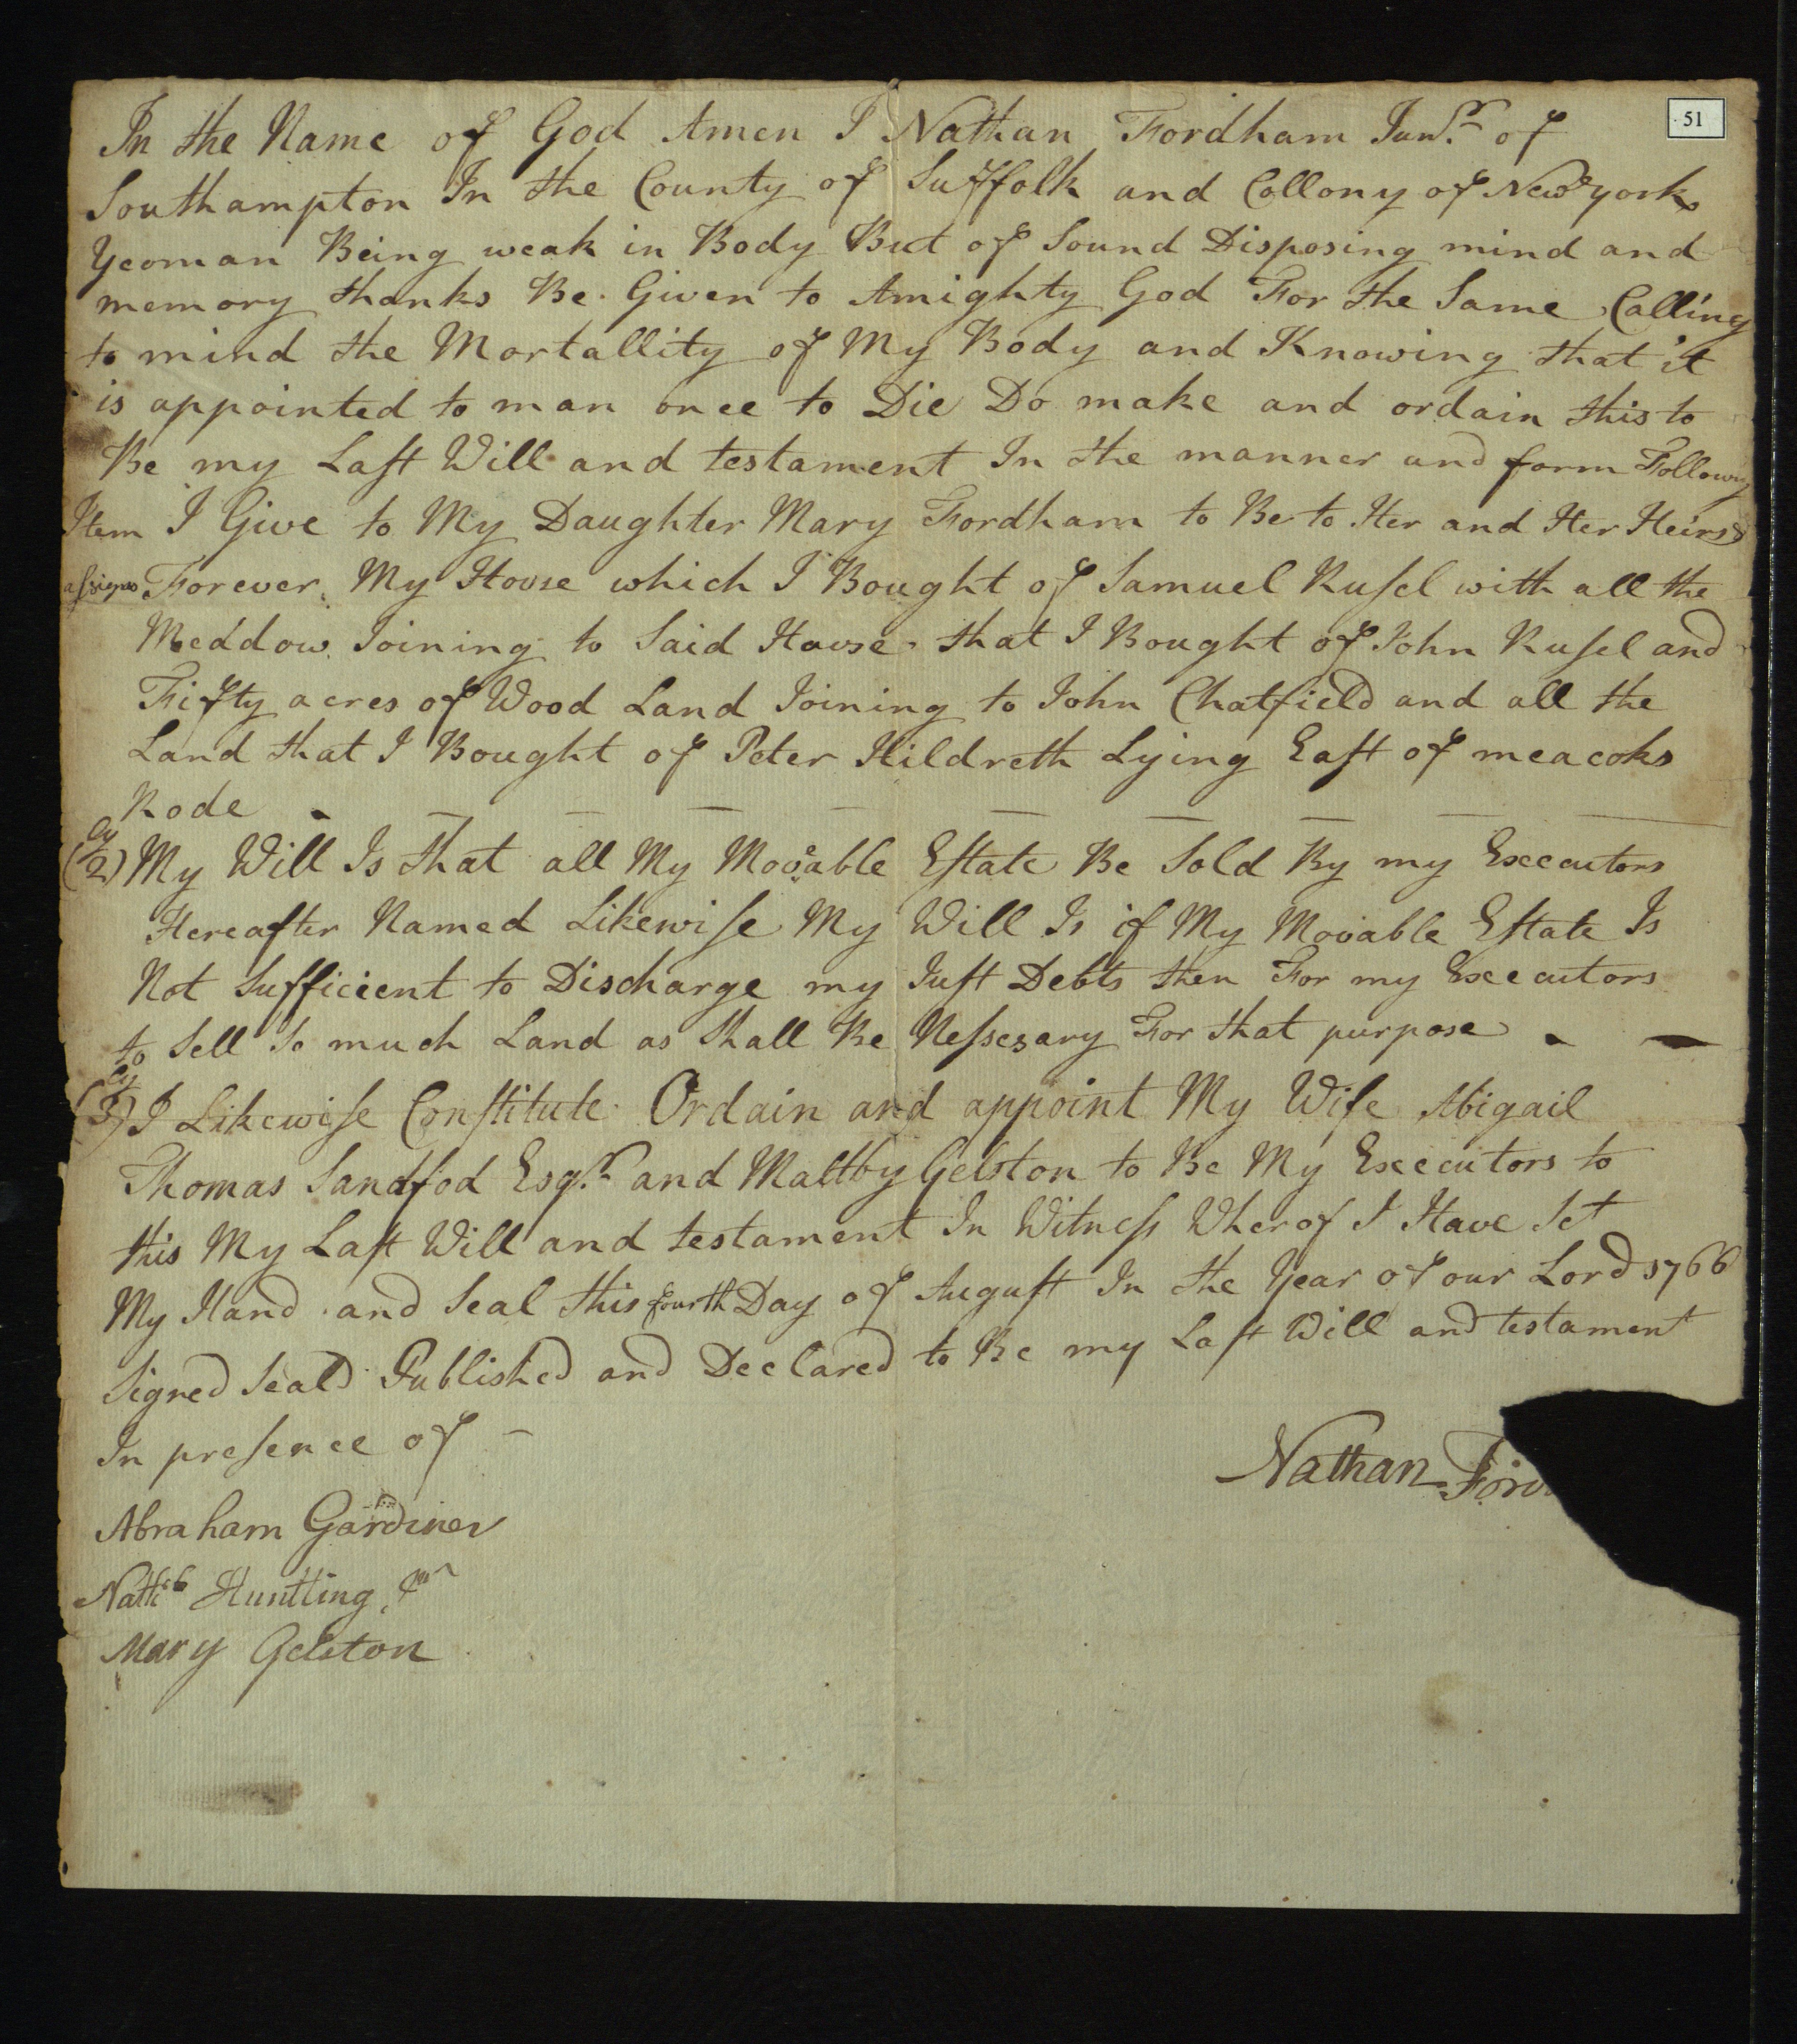 51
In the Name of God Amen I Nathan Fordham Junr. of
Southampton In the County of Suffolk and Collony of New york
Yeoman Being weak in Body But of Sound Disposing mind and
memory thanks Be Given to Amighty God For the Same Calling
to mind the Mortallity of My Body and Knowing that it
is appointed to man once to Die Do make and ordain this to
Be my Laſt Will and testament In the manner and form Following
Item I Give to My Daughter Mary Fordham to Be to Her and Her Heirs &
aſsigns Forever. My House which I Bought of Samuel Ruſel with all the
Meddow Joining to Said House that I Bought of John Ruſel and
Fifty acres of Wood Land Joining to John Chatfield and all the
Land that I Bought of Peter Hildreth Lying Eaſt of meacoks
Rode
(2ly) My Will Is that all My Movable Eſtate Be Sold By my Executors
Hereafter Named Likewiſe My Will Is if My Movable Eſtate Is
Not Sufficient to Discharge my Juſt Debts then For my Executors
to Sell So much Land as Shall Be Neſsesary For that purpose
(3ly) I Likewiſe Conſtitute Ordain and appoint My Wife Abigail
Thomas Sandfod Esqr. and Maltby Gelston to Be My Executors to
this My Laſt Will and testament In Witneſs Wherof I Have Set
My Hand and Seal this fourth Day of Auguſt In the Year of our Lord 1766
Signed Seald Published and Declared to Be my Laſt Will and testament
In preſence of
Nathan Ford
Abraham Gardiner
Natheb Huntting Jur
Mary Gelston